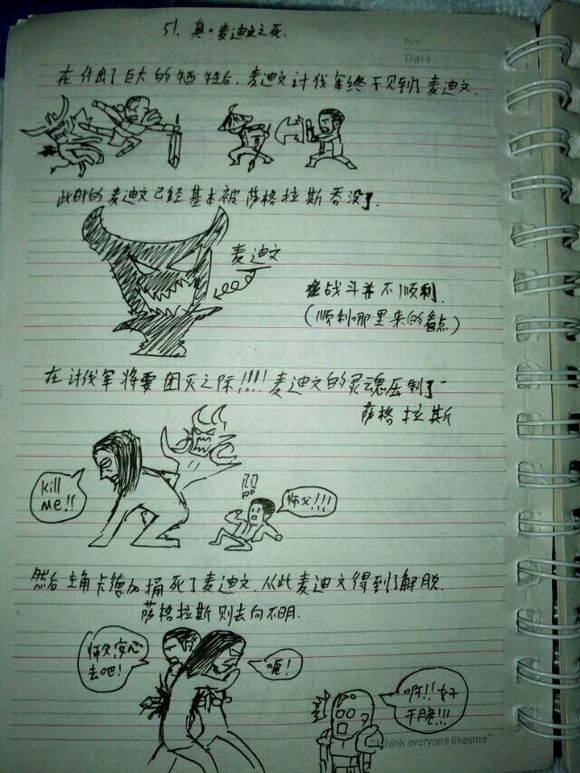 51. 真·麦迪文之死.
No
Date
在付出了巨大的牺牲后，麦迪文讨伐军终于见到了麦迪文.
此时的麦迪文已经基本被萨格拉斯吞没了.
麦迪文
战斗并不顺利.
(顺利哪里来的看点)
在讨伐军将要团灭之际!!!! 麦迪文的灵魂压制了
萨格拉斯
kill
me!!
师父!!!
然后主角卡德加捅死了麦迪文. 从此麦迪文得到了解脱.
萨格拉斯则去向不明.
师父安心
去吧!
呃!
啊!! 好
干脆!!!
"I think everyone likes me"